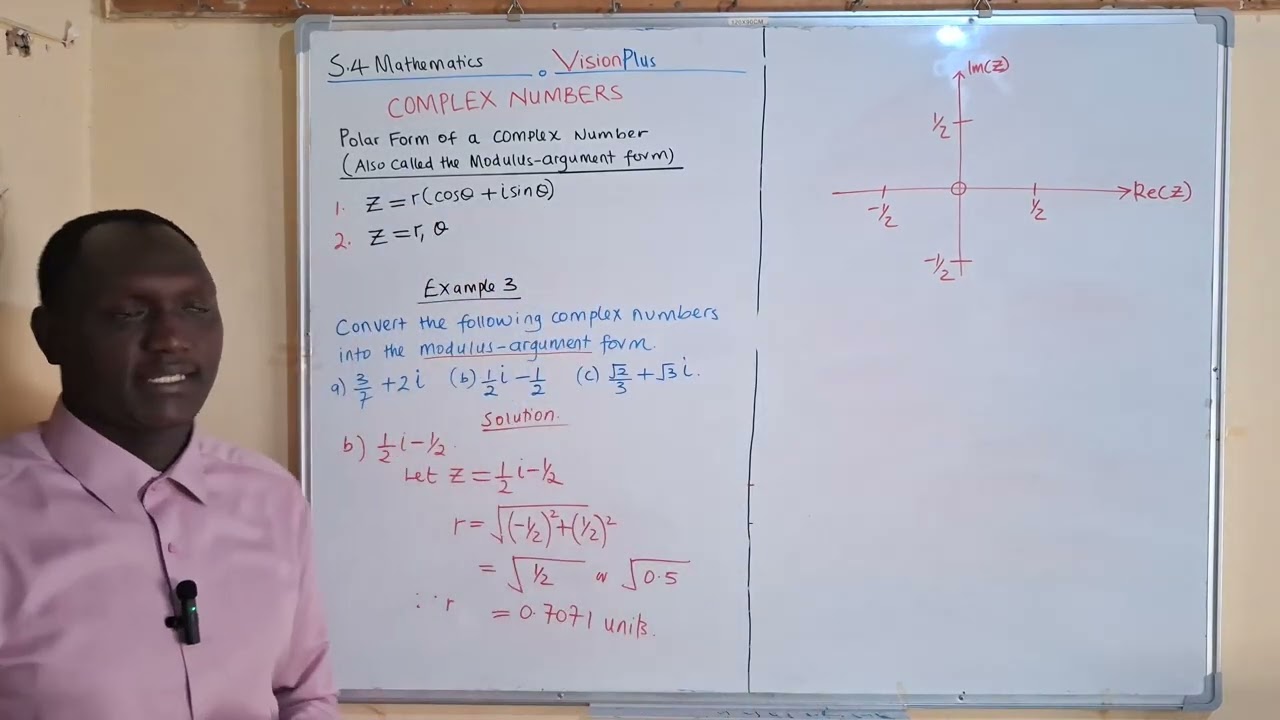 120X90CM
S.4 Mathematics VisionPlus
COMPLEX NUMBERS
Polar Form of a complex Number
(Also called the Modulus-argument form)
1. Z = r(cosθ + isinθ)
2. Z = r, θ
Example 3
Convert the following complex numbers
into the modulus-argument form.
a) 3/7 + 2i (b) 1/2 i - 1/2 (c) √2/3 + √3 i.
Solution.
b) 1/2 i - 1/2.
Let Z = 1/2 i - 1/2
r = √(-1/2)² + (1/2)²
= √1/2 or √0.5
∴ r = 0.7071 units.
Im(Z)
1/2
-1/2 1/2 Re(Z)
-1/2